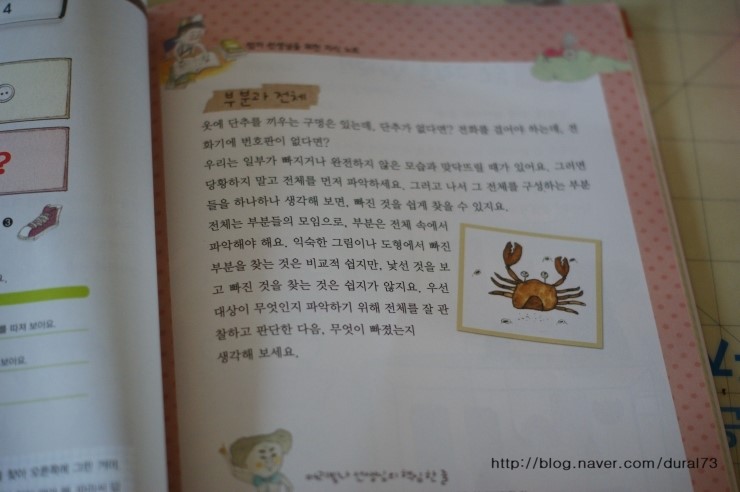 4
엄마 선생님을 위한 지식 노트
부분과 전체
옷에 단추를 끼우는 구멍은 있는데, 단추가 없다면? 전화를 걸어야 하는데, 전
화기에 번호판이 없다면?
우리는 일부가 빠지거나 완전하지 않은 모습과 맞닥뜨릴 때가 있어요. 그러면
당황하지 말고 전체를 먼저 파악하세요. 그러고 나서 그 전체를 구성하는 부분
들을 하나하나 생각해 보면, 빠진 것을 쉽게 찾을 수 있지요.
전체는 부분들의 모임으로, 부분은 전체 속에서
파악해야 해요. 익숙한 그림이나 도형에서 빠진
부분을 찾는 것은 비교적 쉽지만, 낯선 것을 보
고 빠진 것을 찾는 것은 쉽지가 않지요. 우선
대상이 무엇인지 파악하기 위해 전체를 잘 관
찰하고 판단한 다음, 무엇이 빠졌는지
생각해 보세요.
?
❸
를 따져 보아요.
보아요.
찾아 오른쪽에 그린 거예
선생님의 핵심 한 줄
http://blog.naver.com/dural73